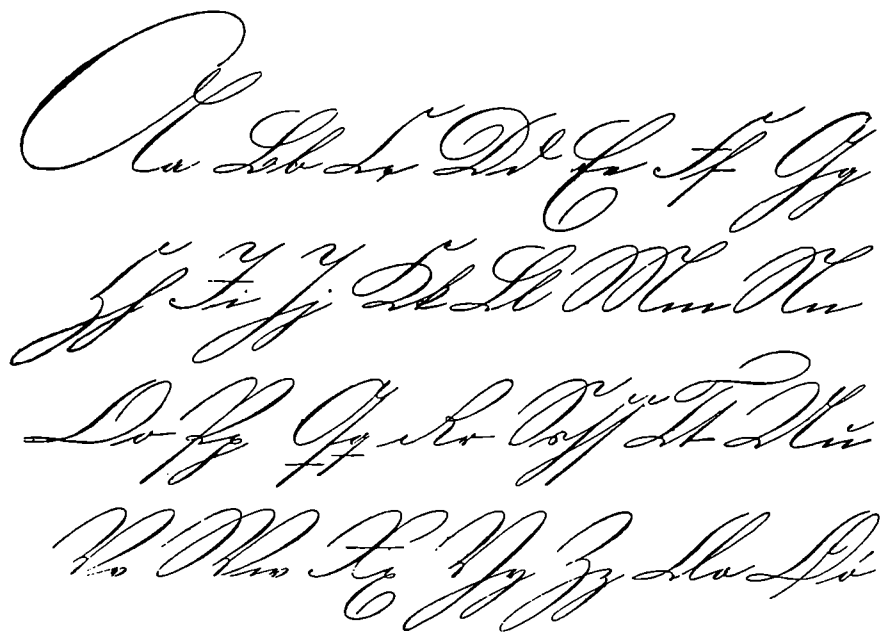 Aa Bb Cc Dd Ee Ff Gg
Hh Ii Jj Kk Ll Mm Nn
Oo Pp Qq Rr Sſs Tt Uu
Vv Ww Xx Yy Zz Ææ Øø